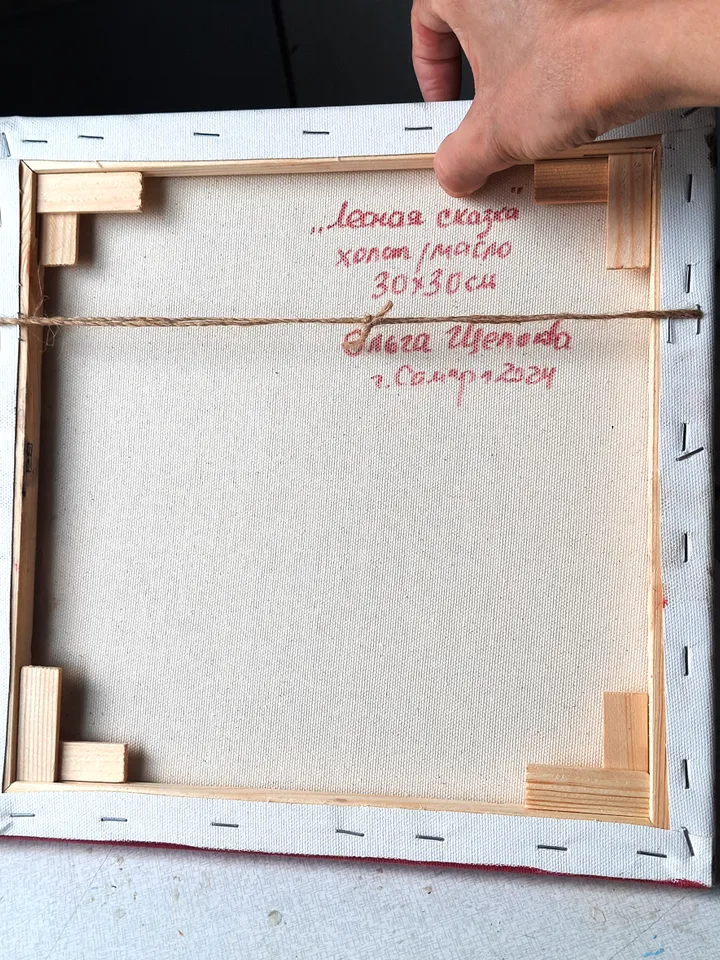 „Лесная сказка"
холст/масло
30х30см
Ольга Щепкова
г. Самара 2024